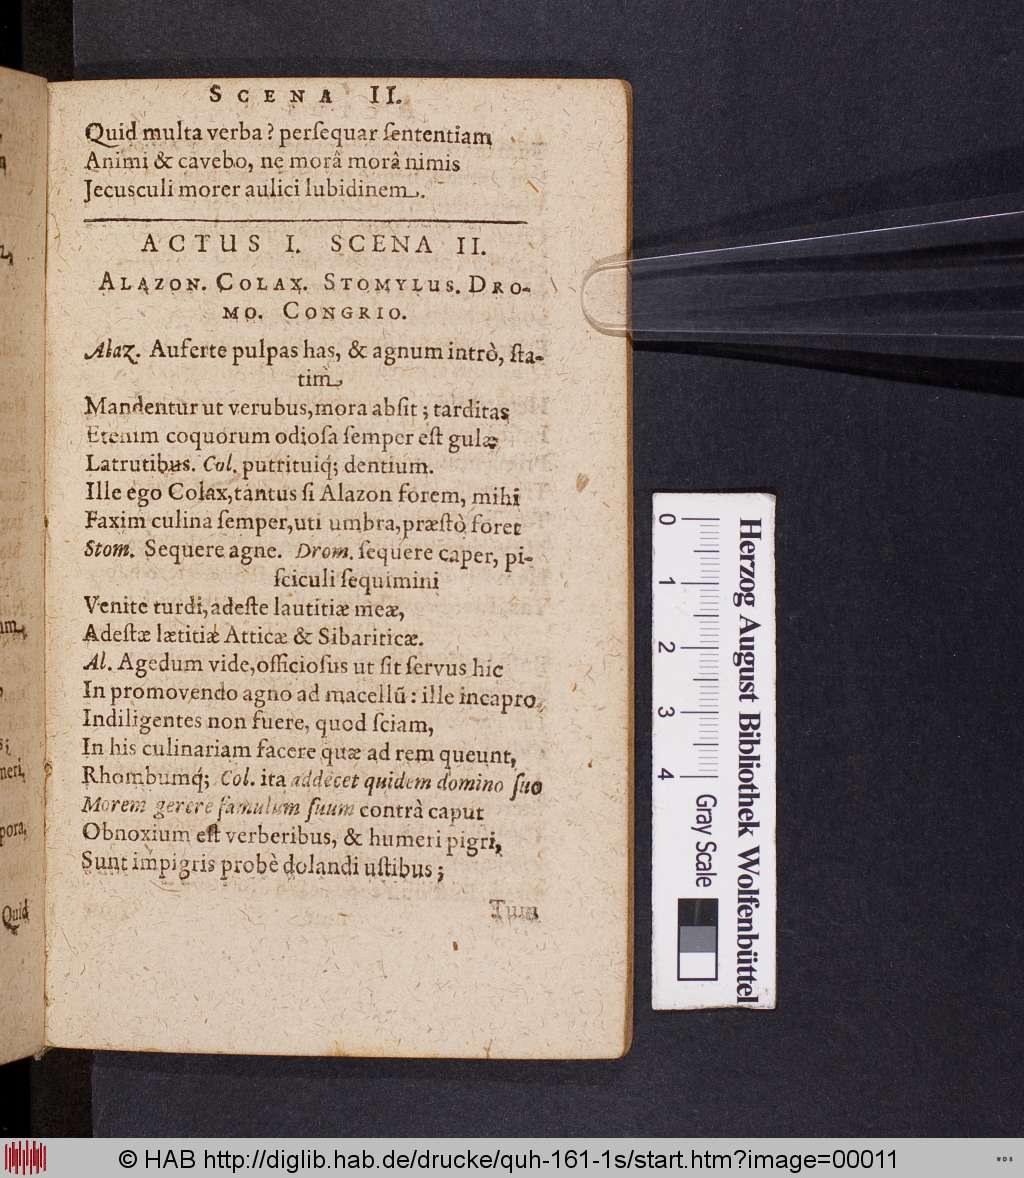 z,
um,
si,
neri,
pora,
Quid
SCENA II.
Quid multa verba? perſequar ſententiam
Animi & cavebo, ne morâ morâ nimis
Jecuſculi morer aulici lubidinem.
ACTUS I. SCENA II.
ALAZON. COLAX. STOMYLUS. DRO-
MO. CONGRIO.
Alaz. Auferte pulpas has, & agnum intrò, ſta-
tim
Mandentur ut verubus, mora abſit; tarditas
Etenim coquorum odioſa ſemper eſt gulæ
Latrutibus. Col. putrituiq́; dentium.
Ille ego Colax, tantus ſi Alazon forem, mihi
Faxim culina ſemper, uti umbra, præſtò foret
Stom. Sequere agne. Drom. ſequere caper, pi-
ſciculi ſequimini
Venite turdi, adeſte lautitiæ meæ,
Adeſtæ lætitiæ Atticæ & Sibariticæ.
Al. Agedum vide, officioſus ut ſit ſervus hic
In promovendo agno ad macellũ: ille in capro,
Indiligentes non fuere, quod ſciam,
In his culinariam facere quæ ad rem queunt,
Rhombumq́; Col. ita addecet quidem domino ſuo
Morem gerere famulum ſuum contrà caput
Obnoxium eſt verberibus, & humeri pigri,
Sunt impigris probè dolandi uſtibus;
Herzog August Bibliothek Wolfenbüttel
0 1 2 3 4 Gray Scale
© HAB http://diglib.hab.de/drucke/quh-161-1s/start.htm?image=00011